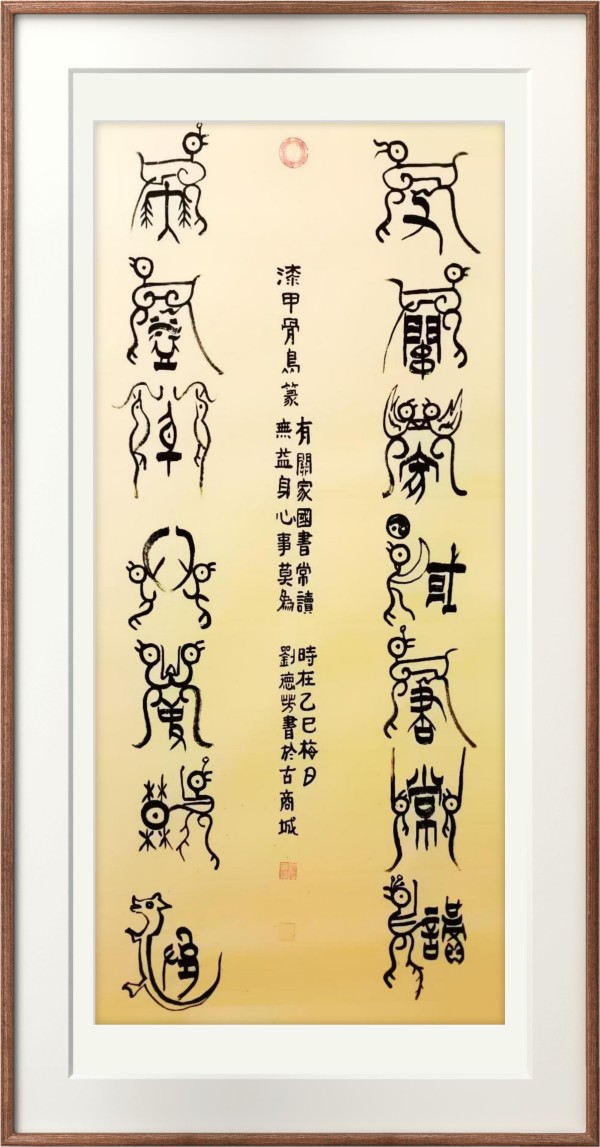 有關家國書常讀
漆甲骨鳥篆
有關家國書常讀
無益身心事莫為
時在乙巳梅月
劉德芳書於古商城
無益身心事莫為